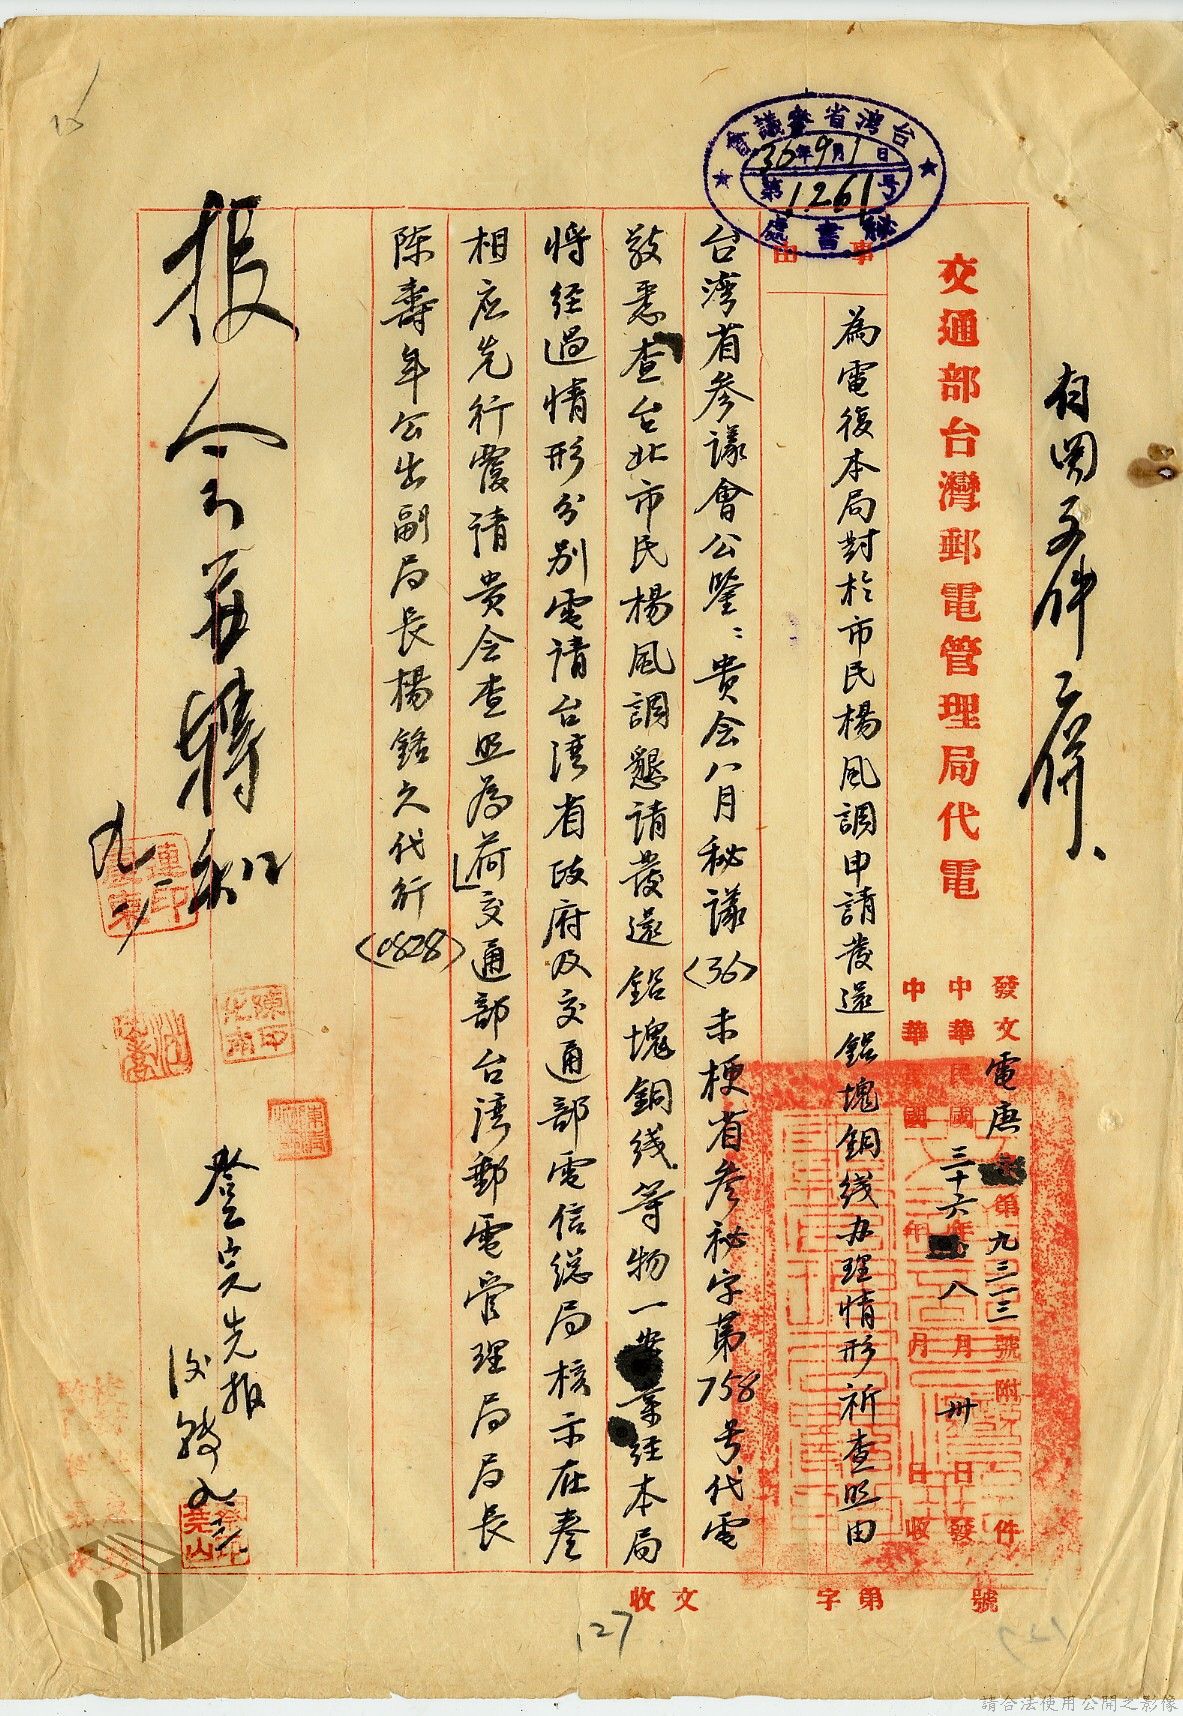 有関
併
台灣省參議會
36年9月1日
第1261号
秘書處
交通部台灣郵電管理局代電
發文電唐第九三一三號附件
中華民國三十六年八月卅日發
中華民國年月日收
事由
為電復本局對於市民楊風調申請發還鋁塊銅线办理情形祈查照由
台湾省參議會公鑒：貴会八月秘議(36)未梗省參秘字第758号代電
敬悉查台北市民楊風調懇請發還鋁塊銅线等物一案業经本局
将经過情形分別電請台湾省政府及交通部電信総局核示在卷
相应先行覆請貴会查照為荷交通部台湾郵電管理局局長
陈壽年公出副局長楊銘久代行(0828)
報
特
九
登完先報
收文
字第
號
127
請合法使用公開之影像